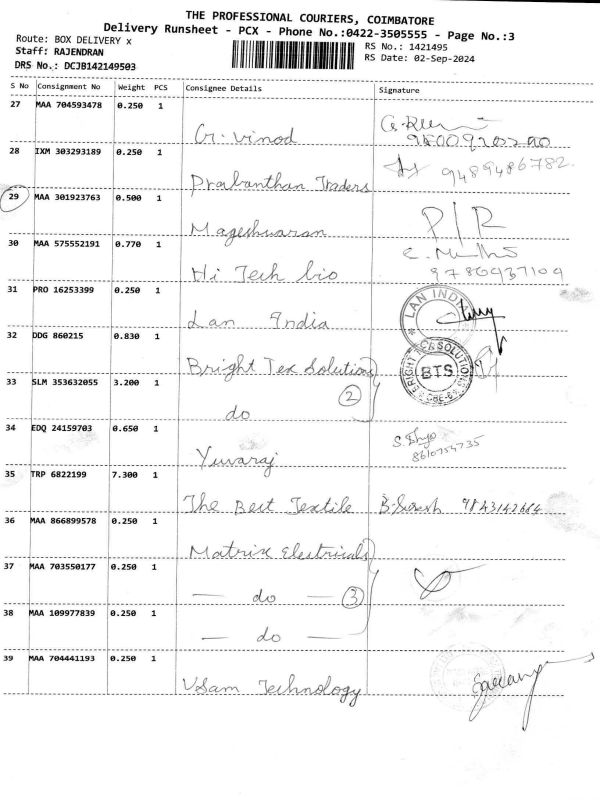 THE PROFESSIONAL COURIERS, COIMBATORE
Delivery Runsheet - PCX - Phone No.:0422-3505555 - Page No.:3
Route: BOX DELIVERY x
RS No.: 1421495
Staff: RAJENDRAN
RS Date: 02-Sep-2024
DRS No.: DCJB142149503
S No Consignment No Weight PCS Consignee Details Signature
27 MAA 704593478 0.250 1
G. Vinod
28 IXM 303293189 0.250 1
9489486782
Prabanthan Traders
29 MAA 301923763 0.500 1
P/R
Mageshwaran
30 MAA 575552191 0.770 1
Hi Tech bio 9780937109
31 PRO 16253399 0.250 1
LAN INDIA
Lan India
32 DDG 860215 0.830 1
BRIGHT TEX SOLUTIONS
BTS
Bright Tex Solutions
33 SLM 353632055 3.200 1
2
do
34 EDQ 24159703 0.650 1
8610753735
Yuvaraj
35 TRP 6822199 7.300 1
The Best Textile B. Suresh 9843142664
36 MAA 866899578 0.250 1
Matrix Electricals
37 MAA 703550177 0.250 1
— do — 3
38 MAA 109977839 0.250 1
— do —
39 MAA 704441193 0.250 1
Vsam Technology